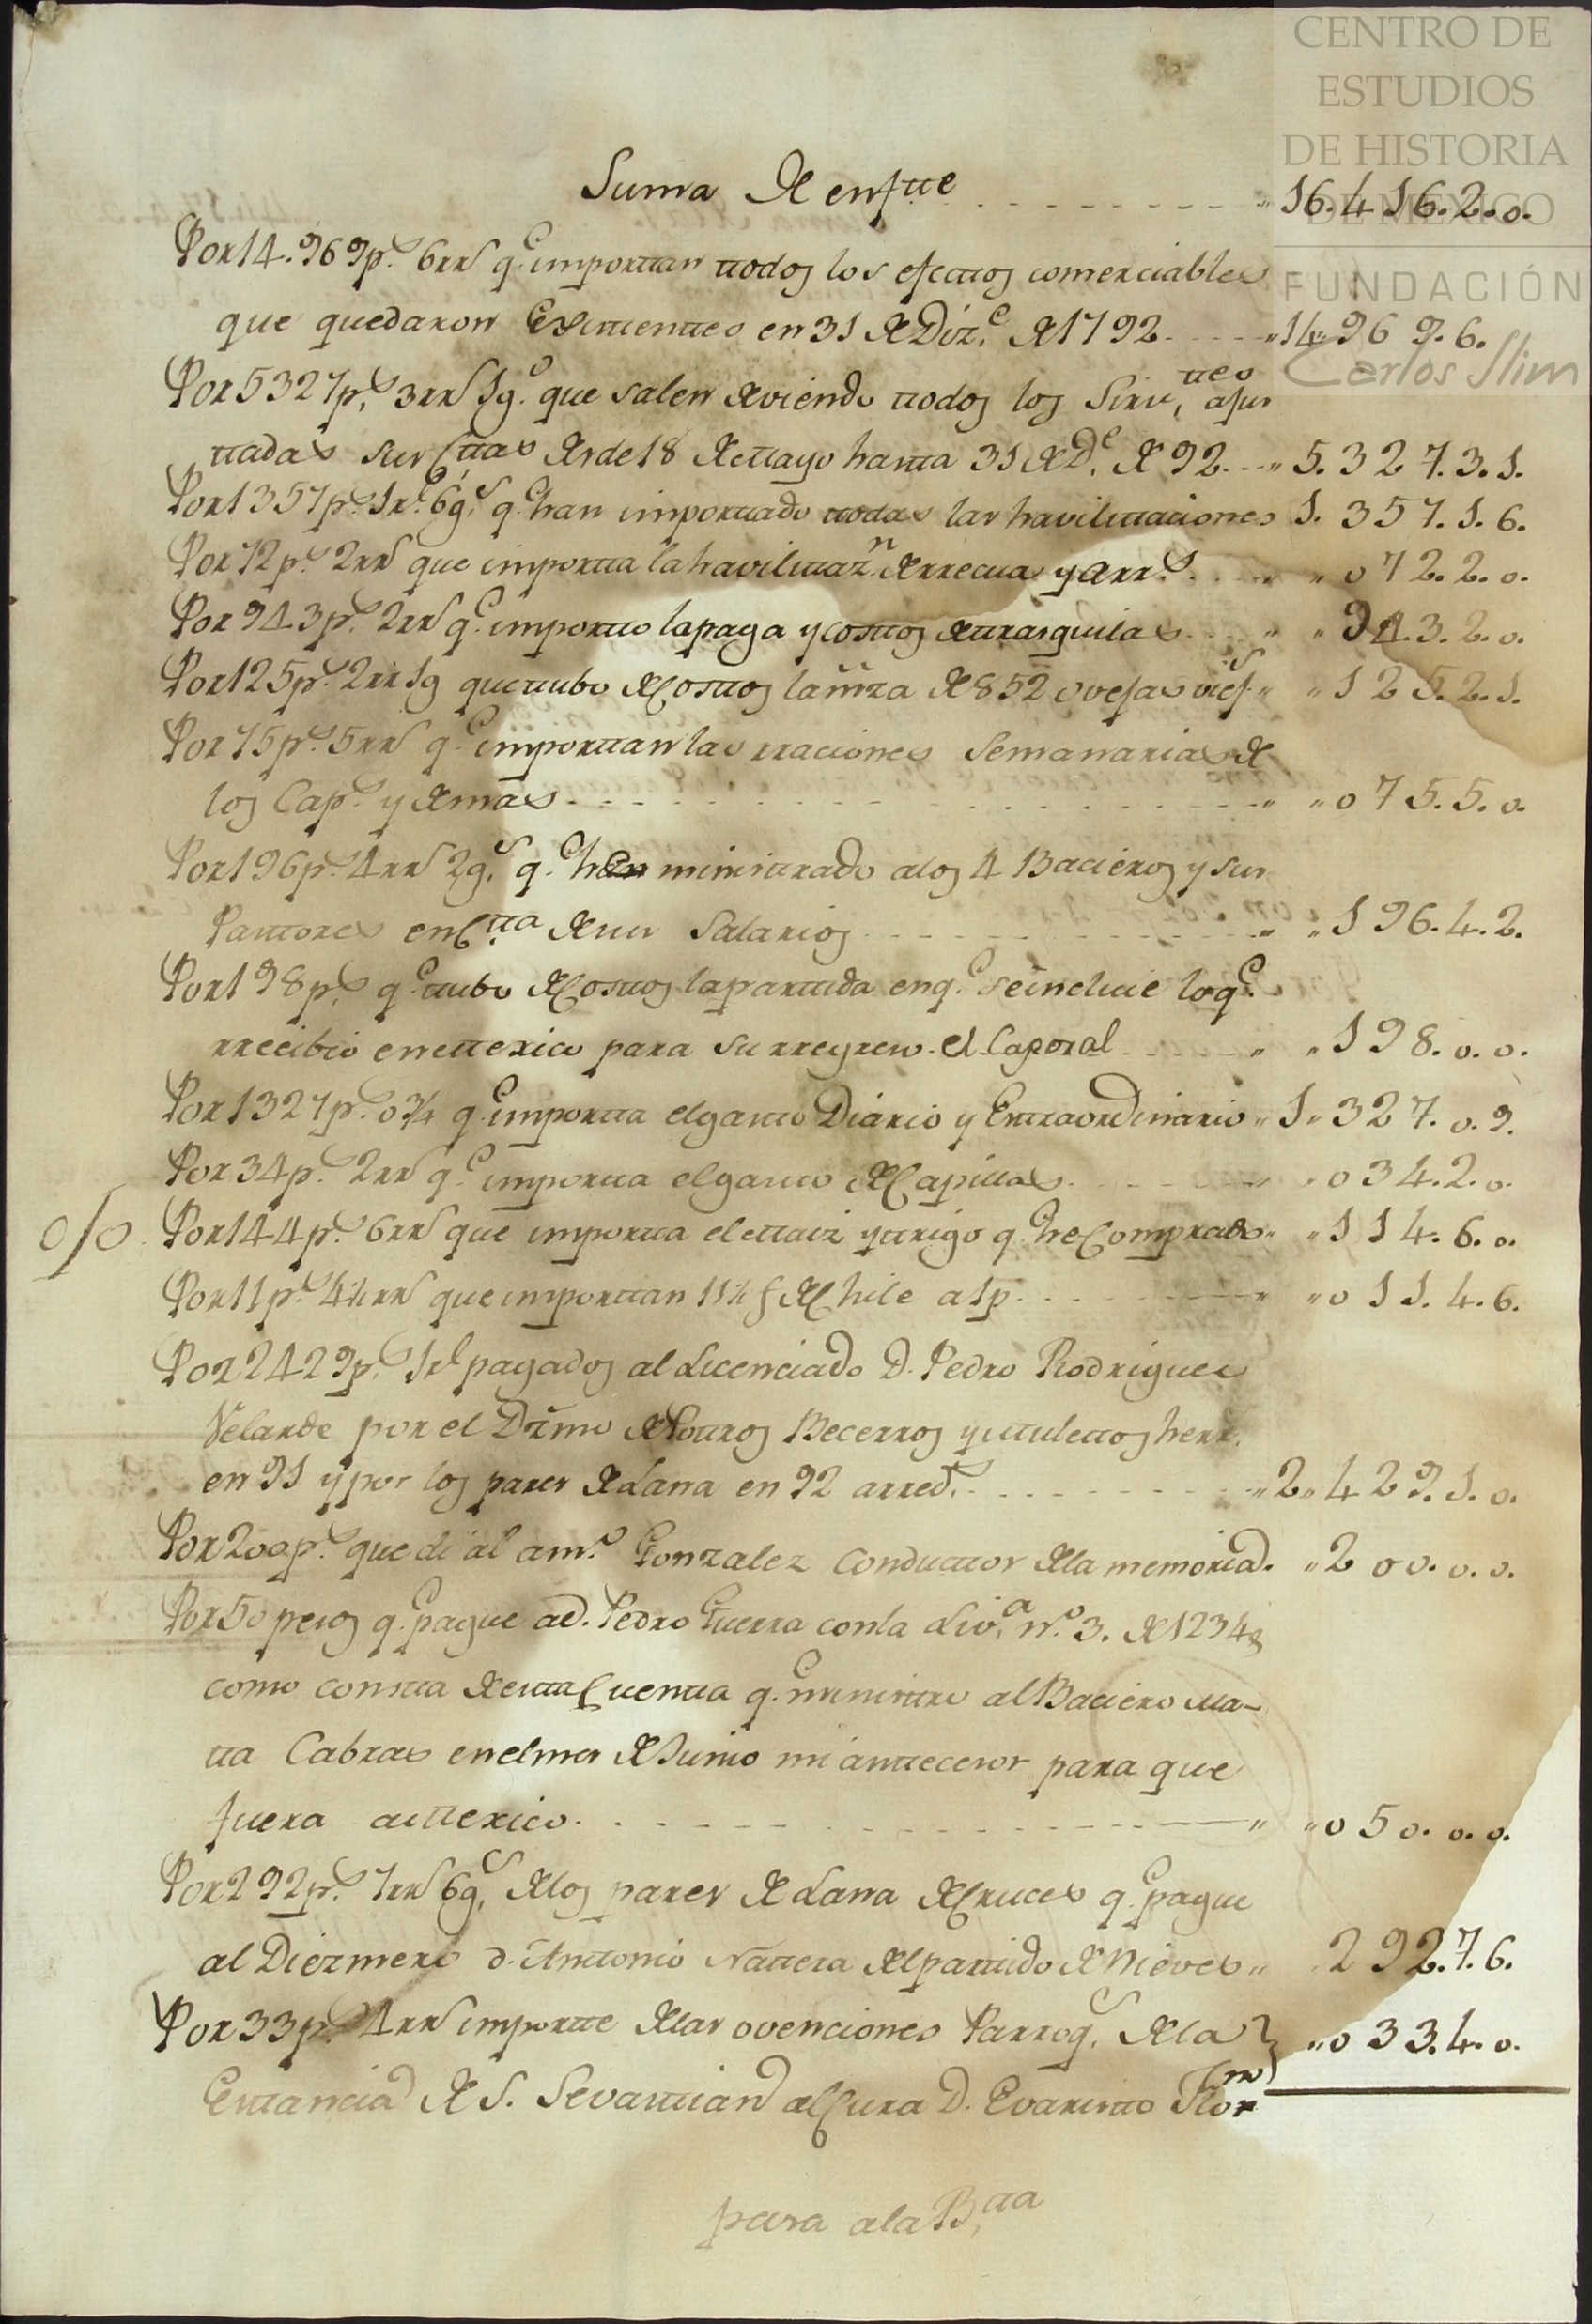 CENTRO DE
ESTUDIOS
DE HISTORIA
DE MÉXICO
FUNDACIÓN
Carlos Slim
Suma de enftte " 16.416.2.0.
Por 14.969p.s 6rrs q.e importtan ttodos los efecttos comerciables
que quedaron Existtenttes en 31 de Diz.e de 1792 " 14" 969.6.
Por 5327p.s 3rrs 1g.o que salen deviendo ttodos los Sirv.ttes ajus
ttadas sus Cttas desde 18 de Mayo hastta 31 de D.e de 92 " 5.327.3.1.
Por 1357p.s 1r.l 6g.s q.e han importtado ttodas las havilittaciones 1.357.1.6.
Por 72p.s 2rrs que importta la havilittaz.n de rrecuas y arr.s " " 072.2.0.
Por 943p.s 2rrs q.e importto la paga y costtos de ttrasquilas " " 943.2.0.
Por 125p.s 2rrs 1g que ttubo de Costtos la mza de 852 ovejas viej.s " " 125.2.1.
Por 75p.s 5rrs q.e importtan las rraciones Semanarias de
los Cap.s y demas " " 075.5.0.
Por 196p.s 4rrs 2g.s q.e han ministtrado a los 4 Bacieros y sus
Pasttores en Ctta de sus Salarios " " 196.4.2.
Por 198p.s q.e ttubo de Costtos la parttida en q.e se incluie lo q.e
rrecibio en Mexico para su rregreso el Caporal " " 198.0.0.
Por 1327p.s 0¾ q.e importta el gastto Diario y Exttraordinario " 1" 327.0.9.
Por 34p.s 2rrs q.e importta el gastto de Capilla " " 034.2.0.
o/o Por 144p.s 6rrs que importta el Maiz y ttrigo q.e he Comprado " " 114.6.0.
Por 11p.s 4½rrs que importtan 11½ f de Chile a 1p " " 011.4.6.
Por 2429p.s 1rl pagados al Licenciado D. Pedro Rodriguez
Velarde por el Dzmo de Pottros Becerros y Mulettos herr.
en 91 y por los pares de Lana en 92 arred.s " 2" 429.1.0.
Por 200p.s que di al am.o Gonzalez Conducttor de la memoria. " 200.0.0.
Por 50 pesos q.e pague a d. Pedro Guerra con la Liv.a N.o 3. de 1234
como constta de estta Cuentta q.e ministtro al Baciero Ma-
tta Cabras en el mes de Junio mi anttecesor para que
fuera a Mexico. " " 050.0.0.
Por 292p.s 7rrs 6g.s de los pares de Lana de Cruces q.e pague
al Diezmero d. Anttonio Nattera del parttido de Nieves " 292.7.6.
Por 33p.s 4rrs importte de las ovenciones Parroq.s de la " 033.4.0.
Esttancia de S. Sevasttian al Cura D. Evaristto
pasa a la Btta